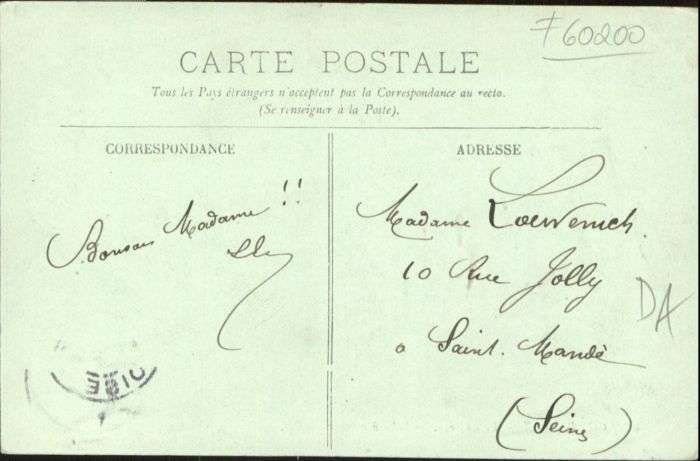 F60200
CARTE POSTALE
Tous les Pays étrangers n'acceptent pas la Correspondance au recto.
(Se renseigner à la Poste).
CORRESPONDANCE
Bonsoir Madame !!
ADRESSE
Madame
10 Rue Jolly
à Saint. Mandé
(Seine)
DA